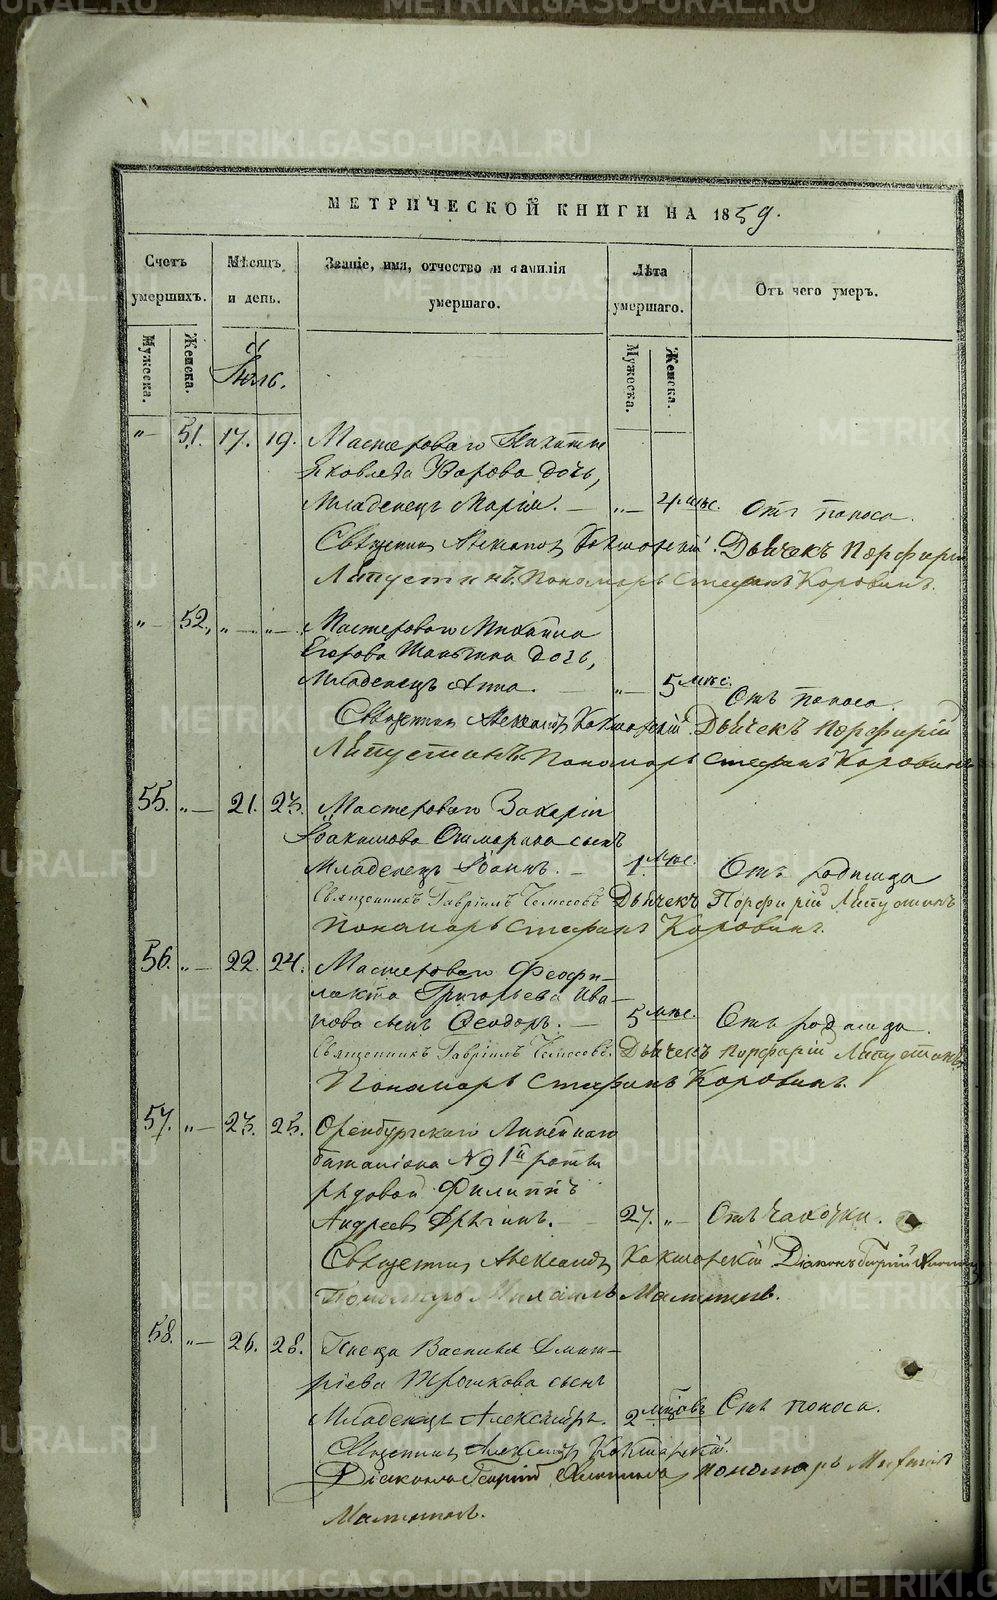 МЕТРИЧЕСКОЙ КНИГИ НА 1859.
Счетъ умершихъ.
Мѣсяцъ и день.
Званіе, имя, отчество и фамилія умершаго.
Лѣта умершаго.
Отъ чего умеръ.
Мужеска.
Женска.
Іюль.
Мужеска.
Женска.
„— 51. 17. 19. Мастероваго Никиты
Яковлева Уварова дочь,
Младенецъ Марія. — „— 4 мѣс. Отъ поноса.
Священникъ Александръ Кокшарскій. Дьячекъ Порфирій
Липустинъ. Пономарь Стефанъ Коровинъ.
„— 52. „— „— Мастероваго Михаила
Егорова дочь,
Младенецъ Анна. — „— 5 мѣс. Отъ поноса.
Священникъ Александръ Кокшарскій. Дьячекъ Порфирій
Липустинъ. Пономарь Стефанъ Коровинъ
55. „— 21. 23. Мастероваго Захарія
Іоакимова сынъ
Младенецъ Іоаннъ. — 1 мѣс. Отъ родимца
Священникъ Гавріилъ Дьячекъ Порфирій Липустинъ
Пономарь Стефанъ Коровинъ.
56. „— 22. 24. Мастероваго Феофи-
лакта Григорьева Ива-
нова сынъ Ѳеодоръ. — 5 мѣс. Отъ родимца.
Священникъ Гавріилъ Дьячекъ Порфирій Липустинъ
Пономарь Стефанъ Коровинъ.
57. „— 23. 25. Оренбургскаго Линейнаго
баталіона № 9 1й роты
рядовой Филиппъ
Андреевъ — 27. „— Отъ чахотки.
Священникъ Александръ Кокшарскій Діаконъ
Пономарь Михаилъ
58. „— 26. 28. Писца Василья Дмит-
ріева сынъ
Младенецъ Александръ. 2 мѣсяцовъ Отъ поноса.
Священникъ Александръ Кокшарскій.
Діаконъ Пономарь Михаилъ
METRIKI.GASO-URAL.RU